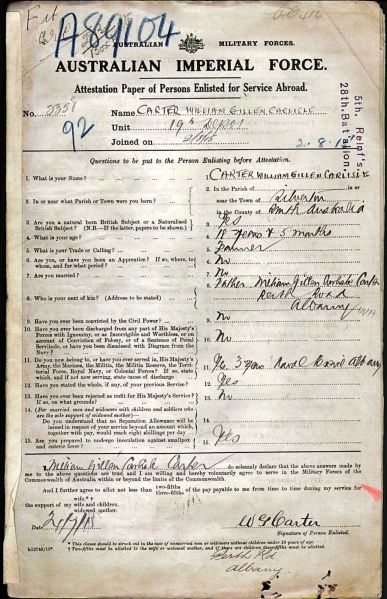 Fit
A89104
AUSTRALIAN MILITARY FORCES.
AUSTRALIAN IMPERIAL FORCE.
Attestation Paper of Persons Enlisted for Service Abroad.
5th. Reinf's
28th. Battalion
No. 2358
Name CARTER WILLIAM GILLEN CARLISLE
92
Unit 19th DEPOT
Joined on
2.8.15
Questions to be put to the Person Enlisting before Attestation.
1. What is your Name?
1. CARTER WILLIAM GILLEN CARLISLE
2. In or near what Parish or Town were you born?
2. In the Parish of in or
near the Town of Silverton
in the County of South Australia
3. Are you a natural born British Subject or a Naturalised British Subject? (N.B.—If the latter, papers to be shown.)
3. Yes
4. What is your age?
4. 18 years & 5 months
5. What is your Trade or Calling?
5. Farmer
6. Are you, or have you been an Apprentice? If so, where, to whom, and for what period?
6. No
7. Are you married?
7. No
8. Who is your next of kin? (Address to be stated)
8. Father William Gillen Carlisle Carter
Perth Road
Albany
9. Have you ever been convicted by the Civil Power?
9. No
10. Have you ever been discharged from any part of His Majesty's Forces with Ignominy, or as Incorrigible and Worthless, or on account of Conviction of Felony, or of a Sentence of Penal Servitude, or have you been dismissed with Disgrace from the Navy?
10. No
11. Do you now belong to, or have you ever served in, His Majesty's Army, the Marines, the Militia, the Militia Reserve, the Territorial Force, Royal Navy, or Colonial Forces? If so, state which, and if not now serving, state cause of discharge
11. Yes. 3 years Naval Albany
12. Have you stated the whole, if any, of your previous Service?
12. Yes
13. Have you ever been rejected as unfit for His Majesty's Service? If so, on what grounds?
13. No
14. (For married men and widowers with children and soldiers who are the sole support of widowed mother)—
Do you understand that no Separation Allowance will be issued in respect of your service beyond an amount which, together with pay would reach eight shillings per day?
14.
15. Are you prepared to undergo inoculation against smallpox and enteric fever?
15. Yes
I, William Gillen Carlisle Carter do solemnly declare that the above answers made by me to the above questions are true, and I am willing and hereby voluntarily agree to serve in the Military Forces of the Commonwealth of Australia within or beyond the limits of the Commonwealth.
And I further agree to allot not less than two-fifths three-fifths of the pay payable to me from time to time during my service for
the support of my wife * † wife and children. widowed mother.
Date
W G Carter
Signature of Person Enlisted.
* This clause should be struck out in the case of unmarried men or widowers without children under 18 years of age.
† Two-fifths must be allotted to the wife or widowed mother, and if there are children three-fifths must be allotted.
Perth Rd
Albany